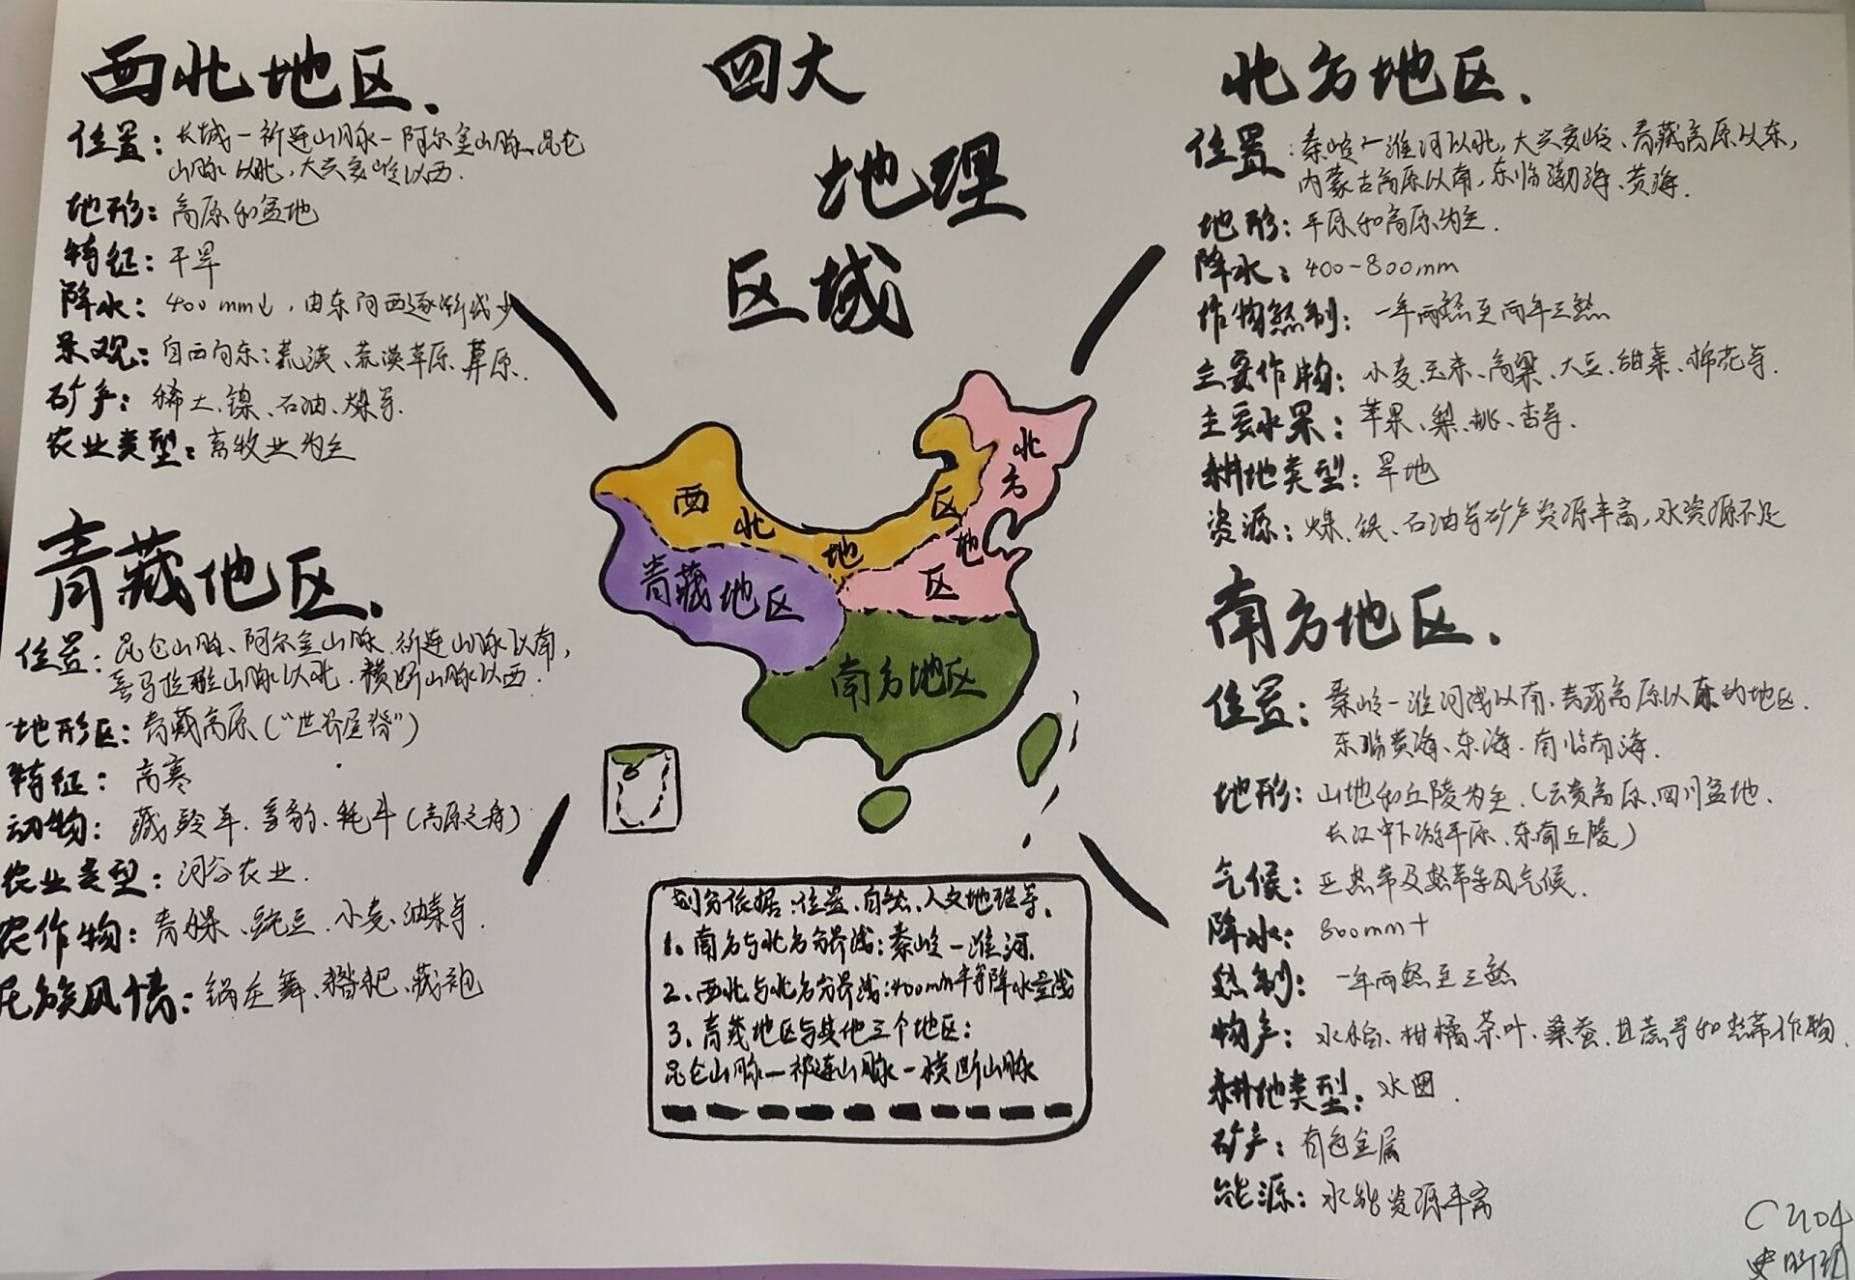 四大
地理
区域
西北地区.
位置: 长城-祁连山脉-阿尔金山脉、昆仑
山脉以北, 大兴安岭以西.
地形: 高原和盆地
特征: 干旱
降水: 400mm↓, 由东向西逐渐减少
景观: 自西向东: 荒漠、荒漠草原、草原.
矿产: 稀土、镍、石油、煤等.
农业类型: 畜牧业为主
青藏地区.
位置: 昆仑山脉、阿尔金山脉、祁连山脉以南,
喜马拉雅山脉以北、横断山脉以西.
地形区: 青藏高原("世界屋脊")
特征: 高寒
动物: 藏羚羊、雪豹、牦牛(高原之舟)
农业类型: 河谷农业.
农作物: 青稞、豌豆、小麦、油菜等.
民族风情: 锅庄舞、糌粑、藏袍
北方地区.
位置: 秦岭-淮河以北, 大兴安岭、青藏高原以东,
内蒙古高原以南, 东临渤海、黄海.
地形: 平原和高原为主.
降水: 400-800mm
作物熟制: 一年两熟至两年三熟
主要作物: 小麦、玉米、高粱、大豆、甜菜、棉花等.
主要水果: 苹果、梨、桃、杏等.
耕地类型: 旱地
资源: 煤、铁、石油等矿产资源丰富, 水资源不足
南方地区.
位置: 秦岭-淮河线以南、青藏高原以东的地区.
东临黄海、东海、南临南海.
地形: 山地和丘陵为主.(云贵高原、四川盆地、
长江中下游平原、东南丘陵)
气候: 亚热带及热带季风气候.
降水: 800mm+
熟制: 一年两熟至三熟
物产: 水稻、柑橘、茶叶、桑蚕、甘蔗等和热带作物.
耕地类型: 水田.
矿产: 有色金属
能源: 水能资源丰富
西
北
地
区
北
方
地
区
青藏地区
南方地区
划分依据: 位置、自然、人文地理等.
1. 南方与北方分界线: 秦岭-淮河.
2. 西北与北方分界线: 400mm年等降水量线
3. 青藏地区与其他三个地区:
昆仑山脉-祁连山脉-横断山脉
C2104